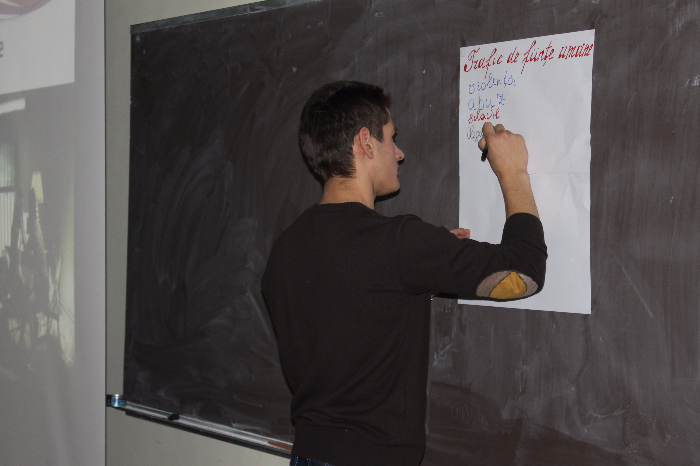 Trafic de ființe umane
violența
abuz
sclavie